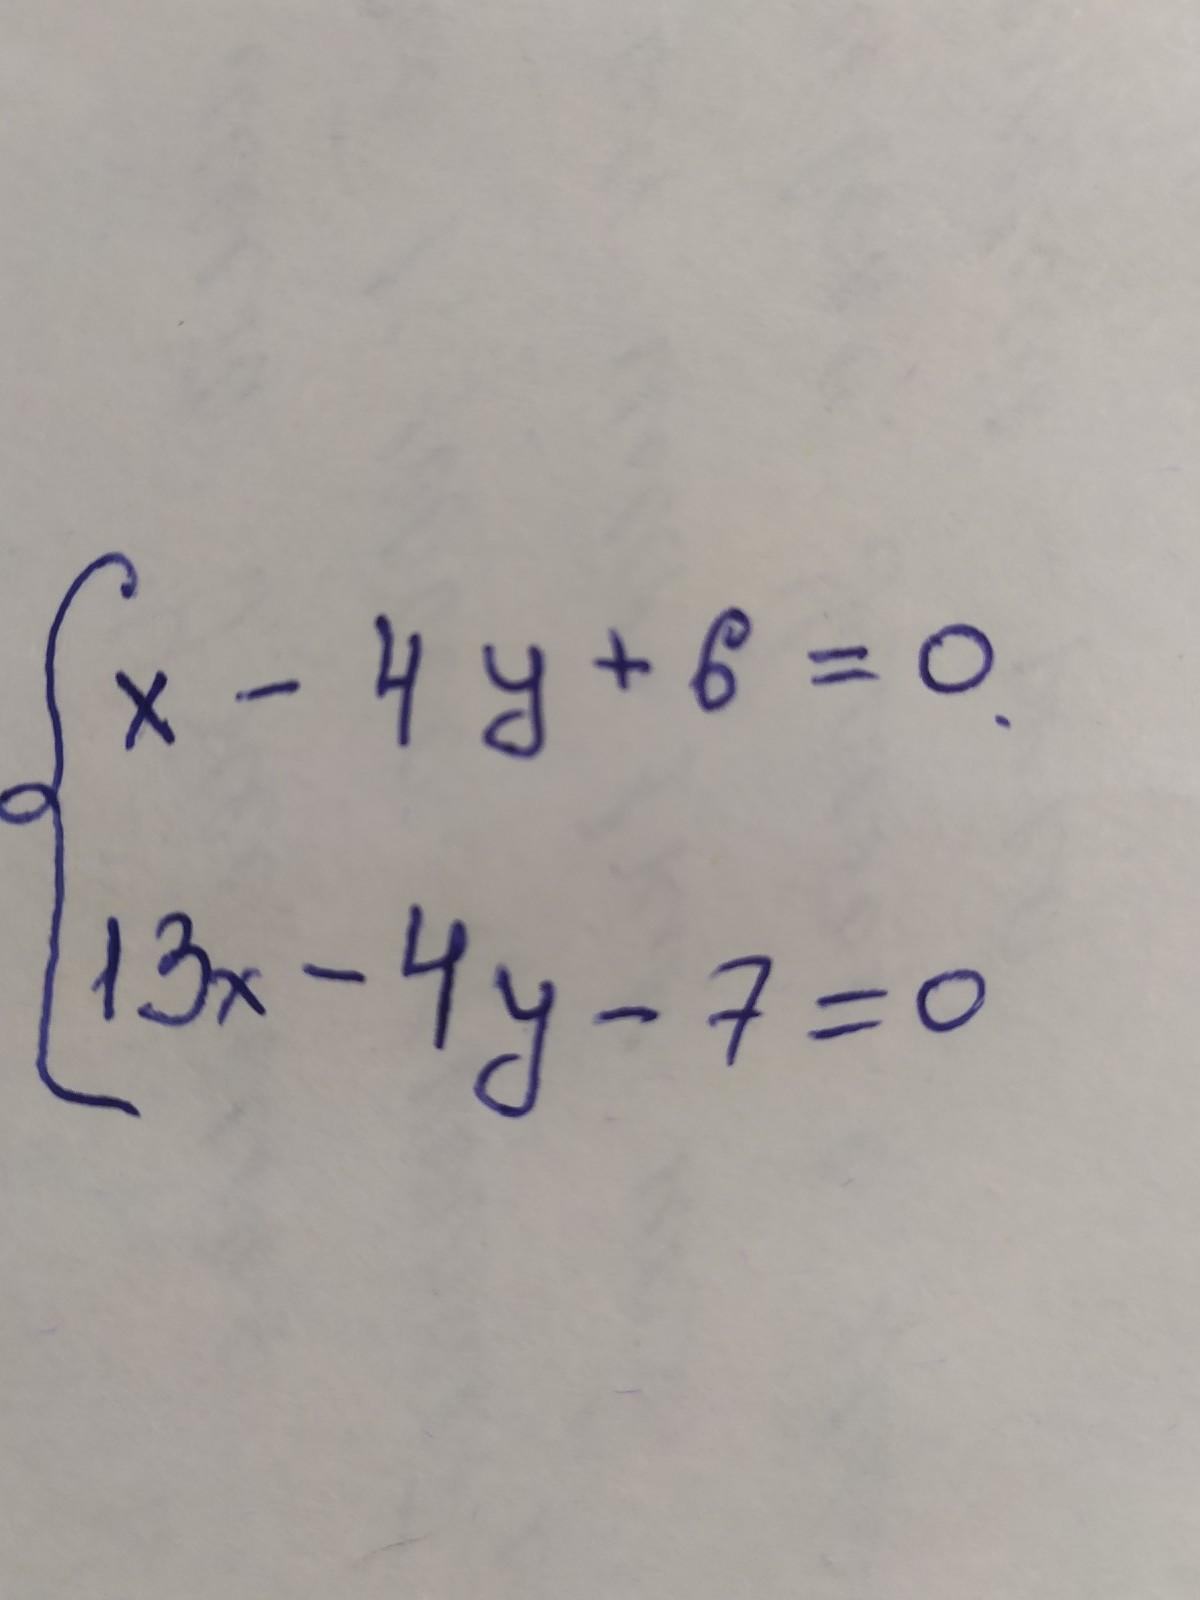 x - 4y + 6 = 0.
13x - 4y - 7 = 0